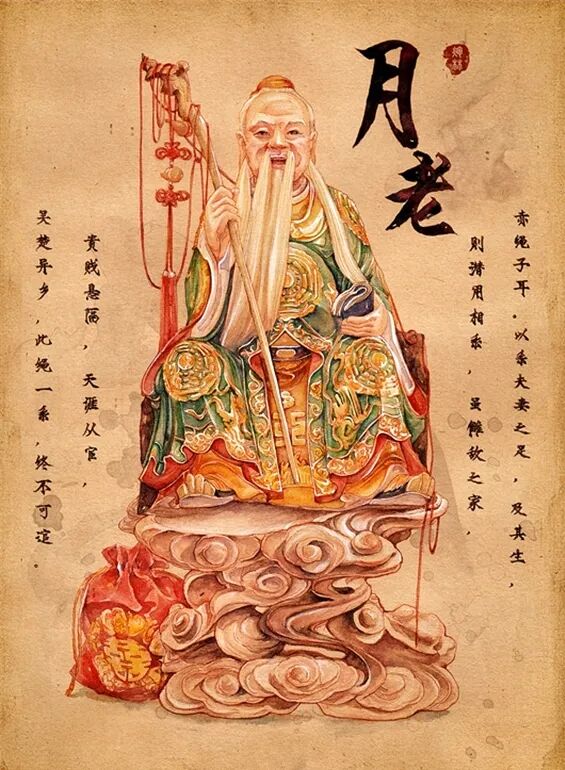 月老
赤绳子耳。以系夫妻之足，及其生，
则潜用相系，虽雠敌之家，
贵贱悬隔，天涯从宦，
吴楚异乡，此绳一系，终不可逭。